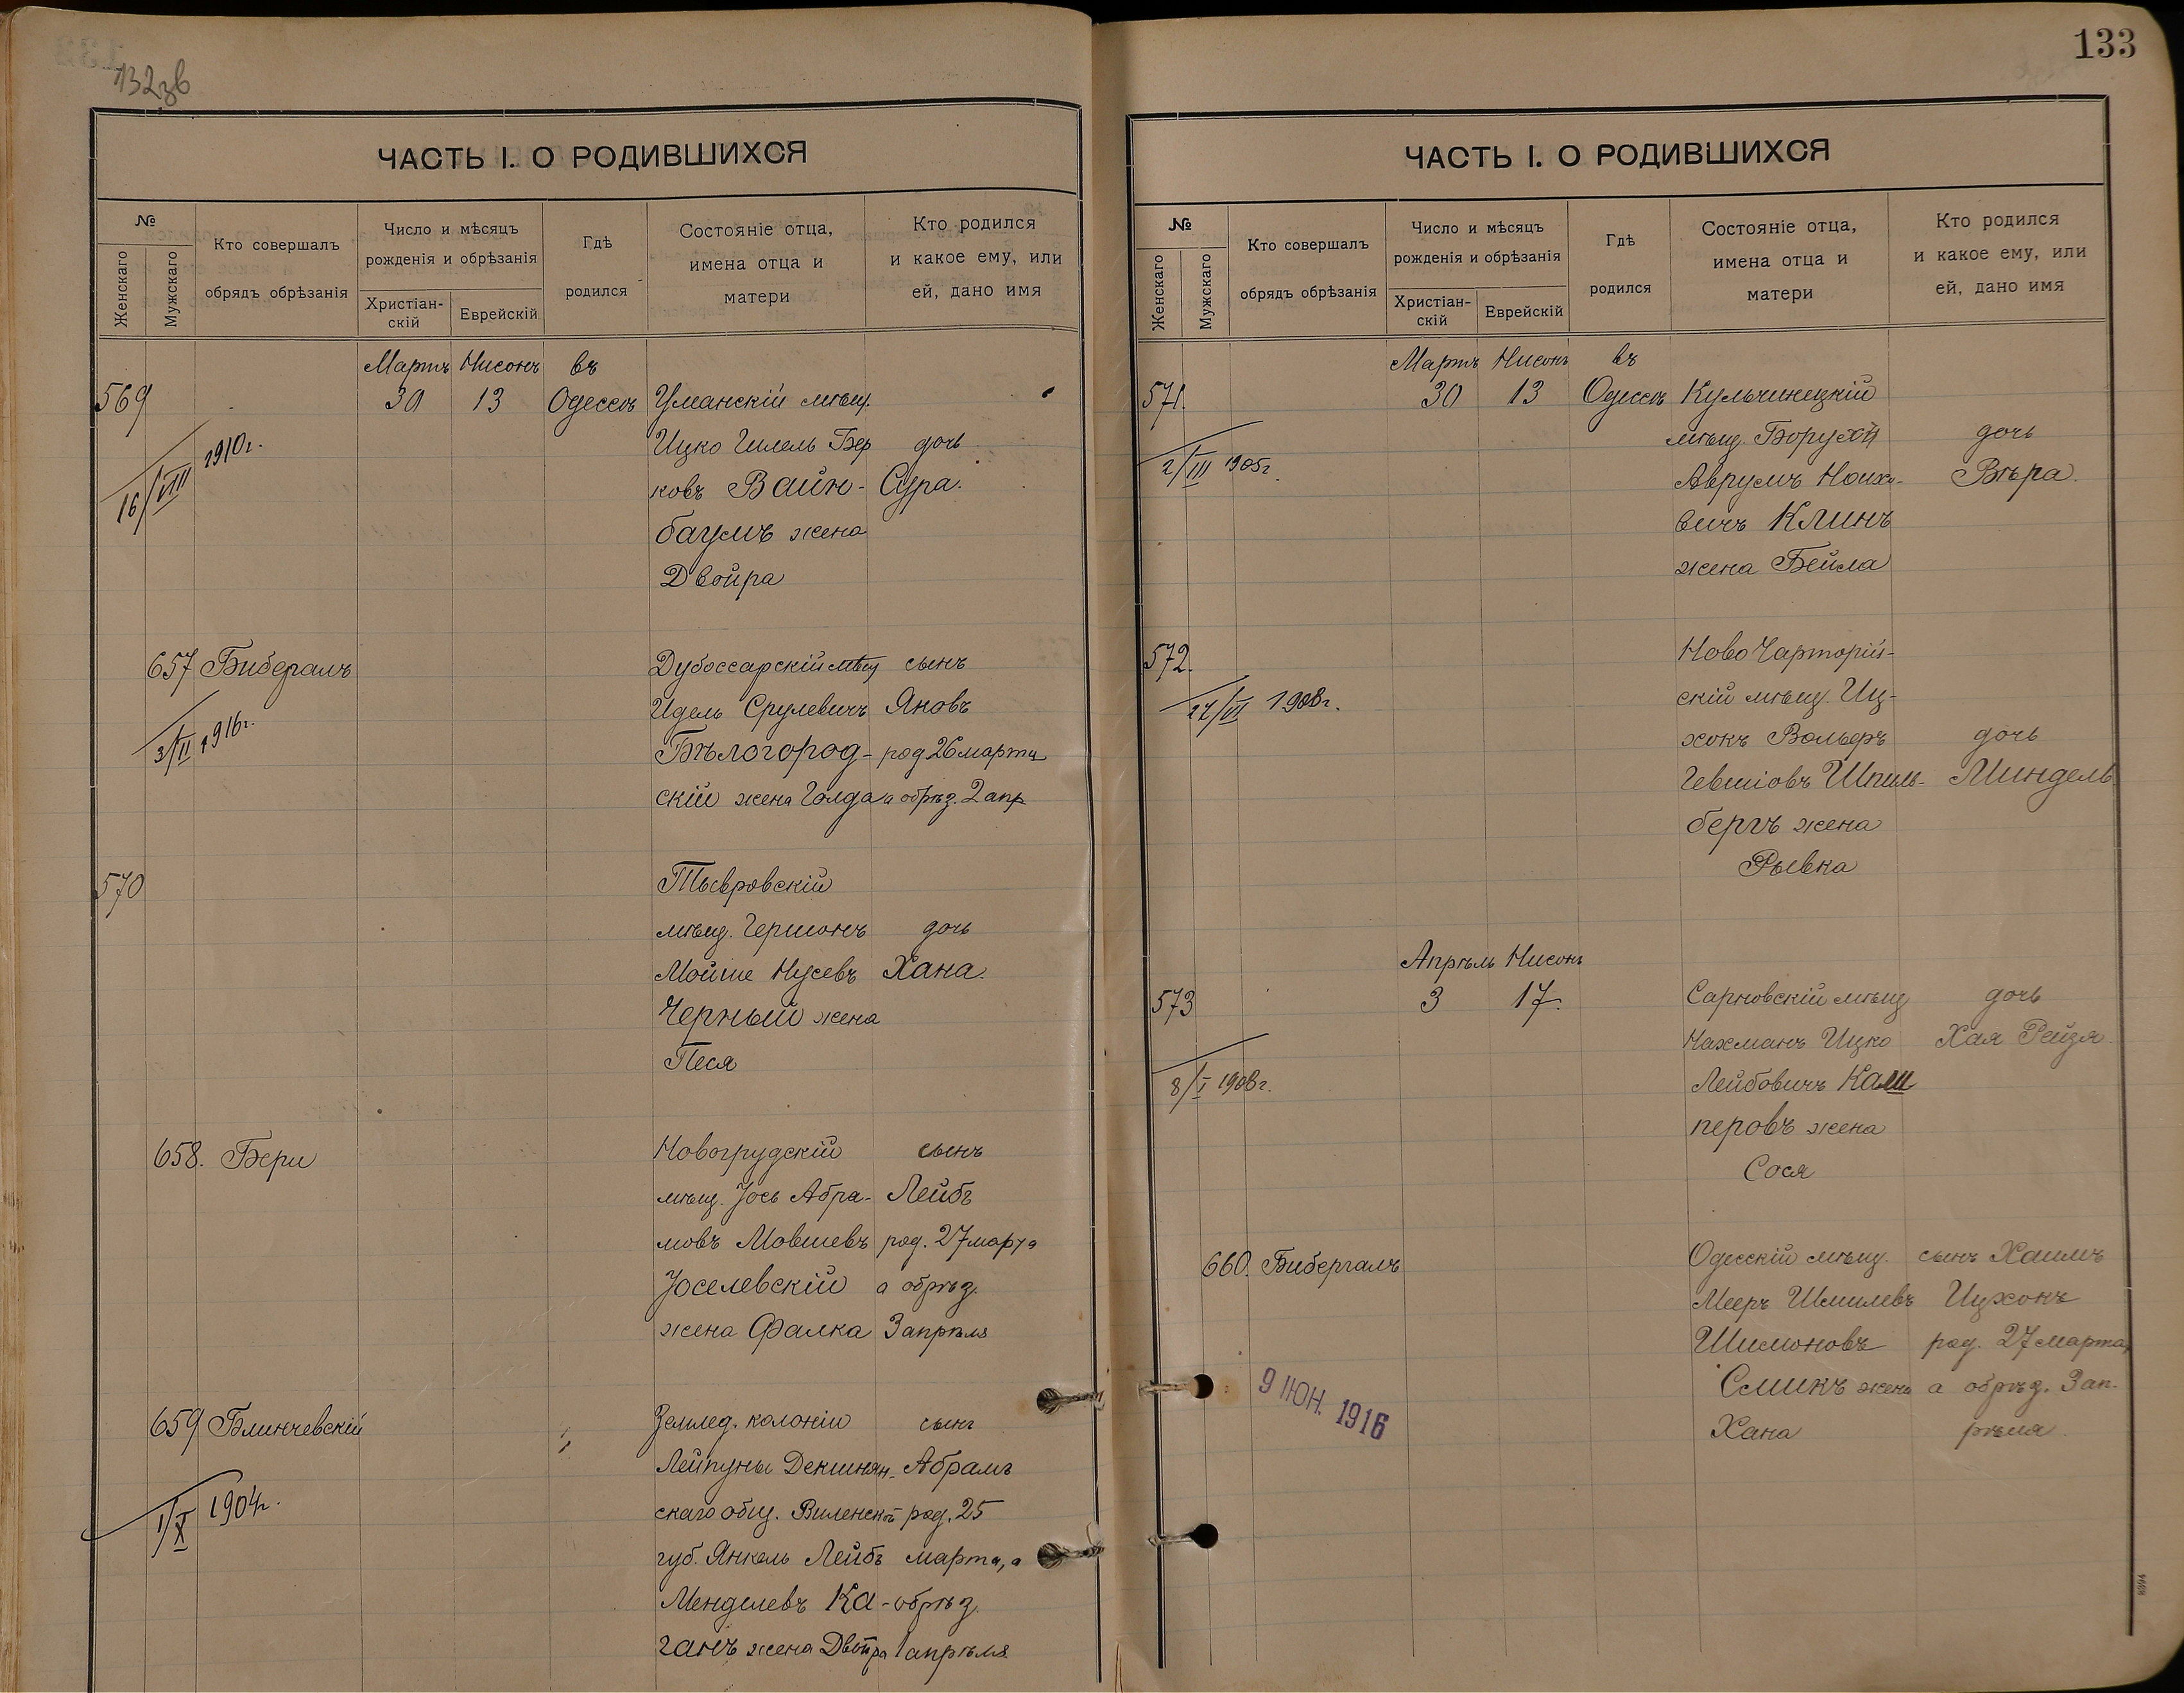 132зв
ЧАСТЬ I. О РОДИВШИХСЯ
№
Женскаго
Мужскаго
Кто совершалъ
обрядъ обрѣзанія
Число и мѣсяцъ
рожденія и обрѣзанія
Христіан-
скій
Еврейскій
Гдѣ
родился
Состояніе отца,
имена отца и
матери
Кто родился
и какое ему, или
ей, дано имя
Мартъ Нисонъ въ
569 30 13 Одессѣ Уманскій мѣщ.
16/VIII 1910г.
Ицко Гилель Бер дочь
ковъ Вайн- Сура.
баумъ жена
Двойра
657 Бибералъ Дубоссарскій мѣщ сынъ
3/II 1916г.
Идель Срулевичъ Яковъ
Бѣлогород- род 26 марта
скій жена Голда а обрѣз. 2 апр
570 Тывровскій
мѣщ. Гершонъ дочь
Мойше Нусевъ Хана.
Черный жена
Песя
658. Бери Новогрудскій сынъ
мѣщ. Іось Абра- Лейбъ
мовъ Мовшевъ род. 27 марта
Іоселевскій а обрѣз.
жена Фалка 3 апрѣля
659 Блинчевскій " Землед. колоніи сынъ
1/X 1904г.
Лейпуны Декшнян- Абрамъ
скаго общ. Виленской род. 25
губ. Янкель Лейбъ марта, а
Менделевъ Ка- обрѣз.
ганъ жена Двойра 1 апрѣля
133
ЧАСТЬ I. О РОДИВШИХСЯ
№
Женскаго
Мужскаго
Кто совершалъ
обрядъ обрѣзанія
Число и мѣсяцъ
рожденія и обрѣзанія
Христіан-
скій
Еврейскій
Гдѣ
родился
Состояніе отца,
имена отца и
матери
Кто родился
и какое ему, или
ей, дано имя
Мартъ Нисонъ въ
571. 30 13 Одессѣ Кульчинецкій
2/III 1905г.
мѣщ. Борухъ дочь
Аврумъ Нохи- Вѣра.
вичъ Клинъ
жена Бейла
572. Ново Чарторій-
27/VI 1908г.
скій мѣщ. Иц-
хокъ Вольфъ дочь
Гевшіовъ Шпиль- Миндель
бергъ жена
Рывка
Апрѣль Нисонъ
573 3 17. Сарновскій мѣщ дочь
Нахманъ Ицко Хая Рейзя
8/I 1908г.
Лейбовичъ Каш
перовъ жена
Сося
660. Бибергалъ Одесскій мѣщ. сынъ Хаимъ
Мееръ Шмилевъ Ицхокъ
Шимоновъ род. 27 марта,
Смикъ жена а обрѣз. 3 ап-
Хана рѣля
9 ІЮН. 1916